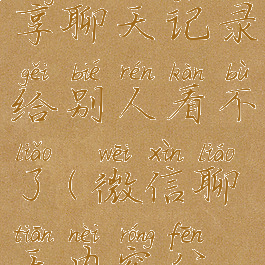 享聊天记录
gěi bié rén kàn bù
给别人看不
liǎo wēi xìn liáo
了（微信聊
tiān nèi róng fēn
天内容分